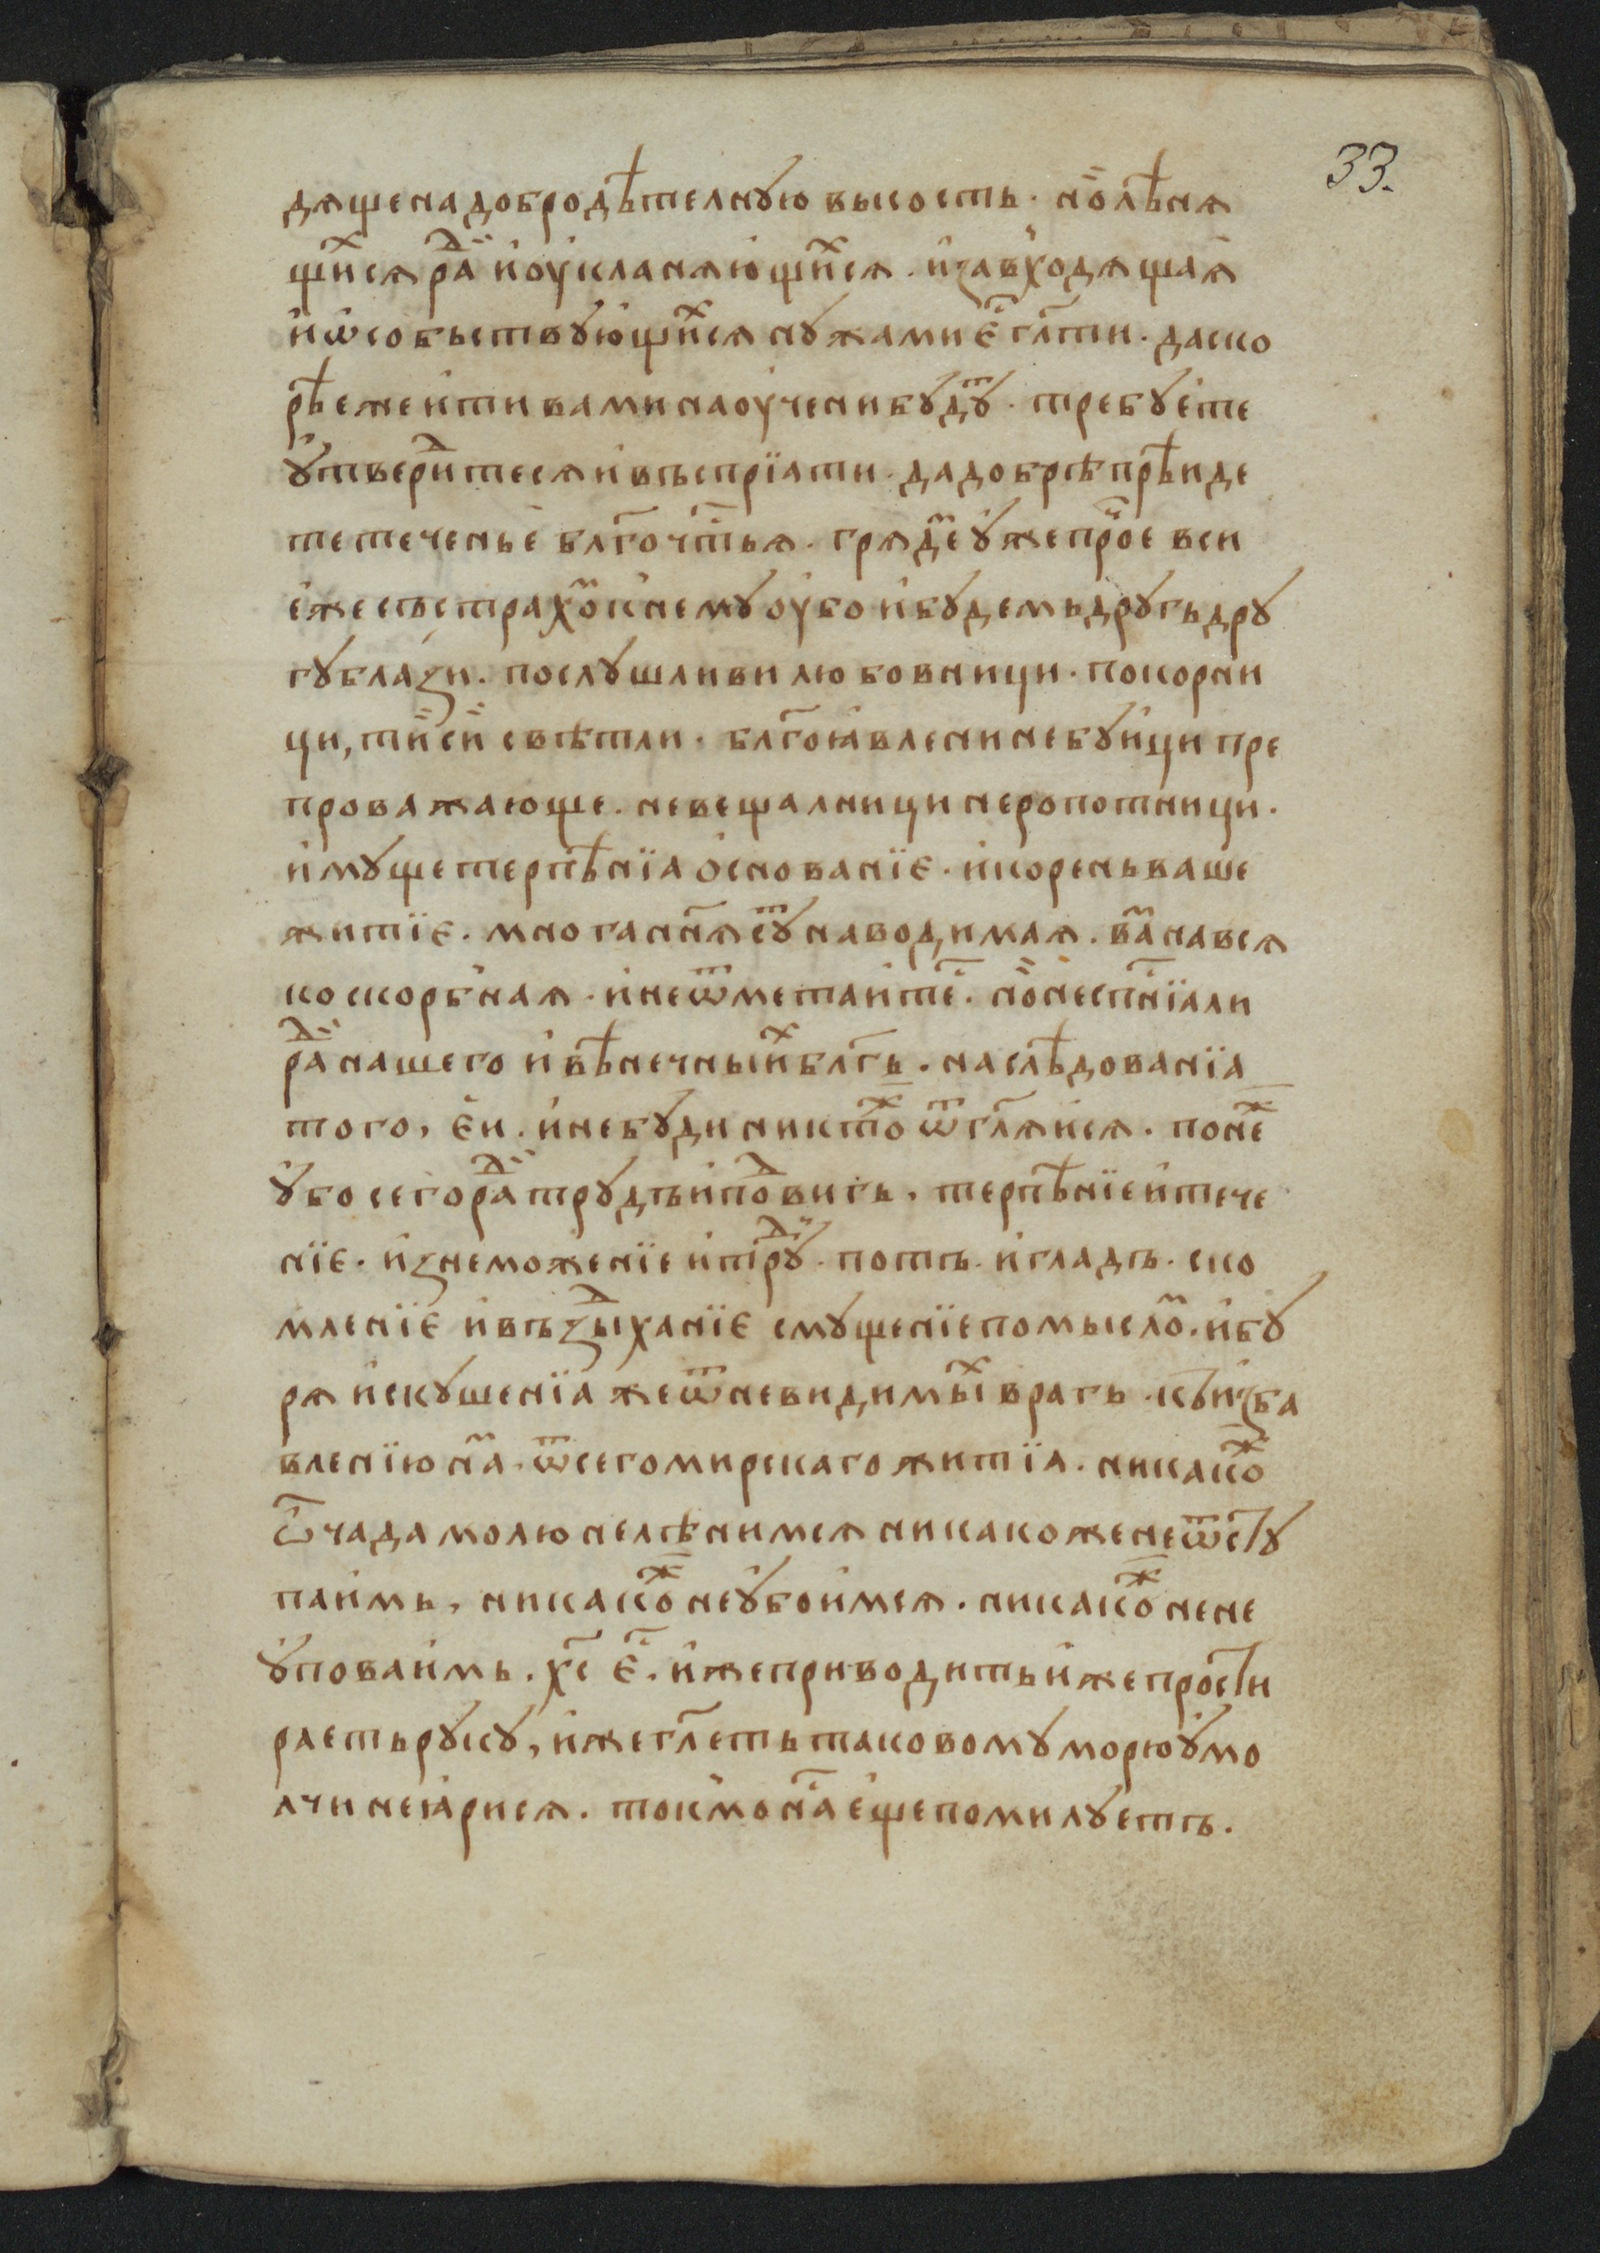 33.
дѧщенадобродѣтелнꙋювысость · нолѣнѧ
щи́ⷯсѧ раⷣи и҆оукланѧю҆щи́ⷯсѧ · и҆завх҆одѧщаѧ҆
и҆ѡ҆собьствꙋю҆щи́ⷯсѧ нꙋжами є҆ⷭ҇ гл҃ти · даско
рѣежеи҆тивамина оу҆ченибꙋдꙋⷮ · требꙋе҆те
ꙋ҆твердⷣитесѧи҆въспрїати · дадобрѣпрѣиде
тетеченьѐ бл҃гоч҇тьѧ · грѧдеⷨ ꙋ҆жепроⷱ҇е вси
е҆жесъстрахоⷨ к҆немꙋ оу҆бо и҆бꙋдемьдрꙋгьдрꙋ
гꙋблази · послꙋшливи любовници · покорни
ци, ти́си́ свѣтли · бл҃гою҆влени небꙋи҆ци пре
проважающе · невещалници неропотници ·
и҆мꙋщетерпѣнїа ѻ҆снованїє · и҆кореньваше
житїє · многа нн҃ѧ сꙋⷮ наводимаѧ · ваⷨ навсѧ
коскорбнаѧ · и҆неѿметаи҆теⷭ҇ · но́неспⷭ҇нїали
раⷣи нашего и҆вѣнечныиⷯ бл҃гъ · наслѣдованїа
того, є҆и · и҆небꙋди никтоⷤ ѿгл҃ѧи҆сѧ · понеⷤ
ꙋ҆босегораⷣи трꙋдъи҆поⷣвигь, терпѣнїеи҆тече
нїє · и҆знеможенїе и҆трꙋⷣ · потъ · и҆гладъ · ско
мленїє и҆въздⷣыханїє смꙋщенїепомыслоⷨ · и҆бꙋ
рѧ и҆скꙋшенїа жеѿневидимыⷯ врагъ · къи҆зба
вленїю наⷨ · ѿсегомирскаго житїа · никакоⷤ
ѽчада молю нелѣнимсѧ никакоженеѿстꙋ
паи҆мь, никакоⷤ неꙋ҆бои҆мсѧ · никакоⷤ нене
ꙋ҆поваи҆мь · хс҃ є҆ⷭ҇ · и҆жеприводитьи҆жепрости
раетьрꙋкꙋ, и҆жегл҃етьтаковомꙋморюꙋ҆мо
лчи неꙗ҆рисѧ · токмо наⷭ҇ е҆щепомилꙋетъ ·